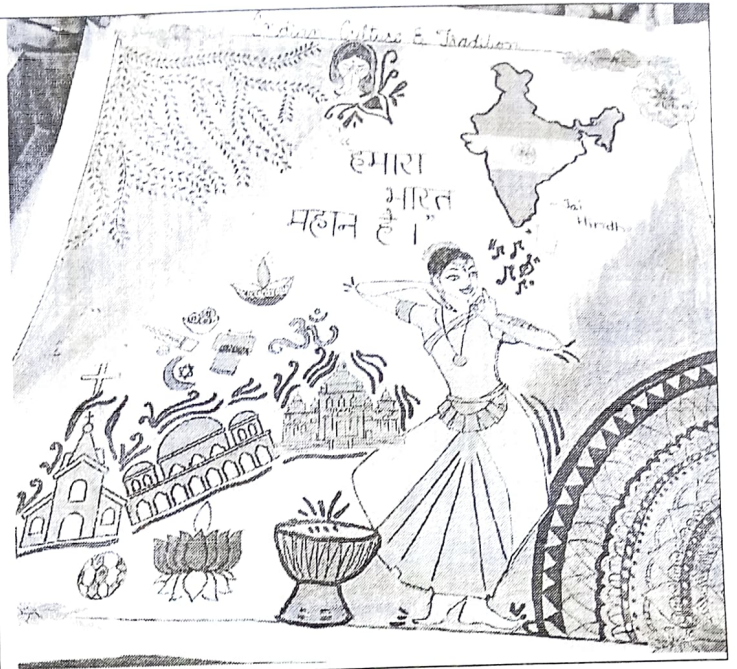 Indian Culture & Tradition
"हमारा
भारत
महान है।"
Jai
Hindh